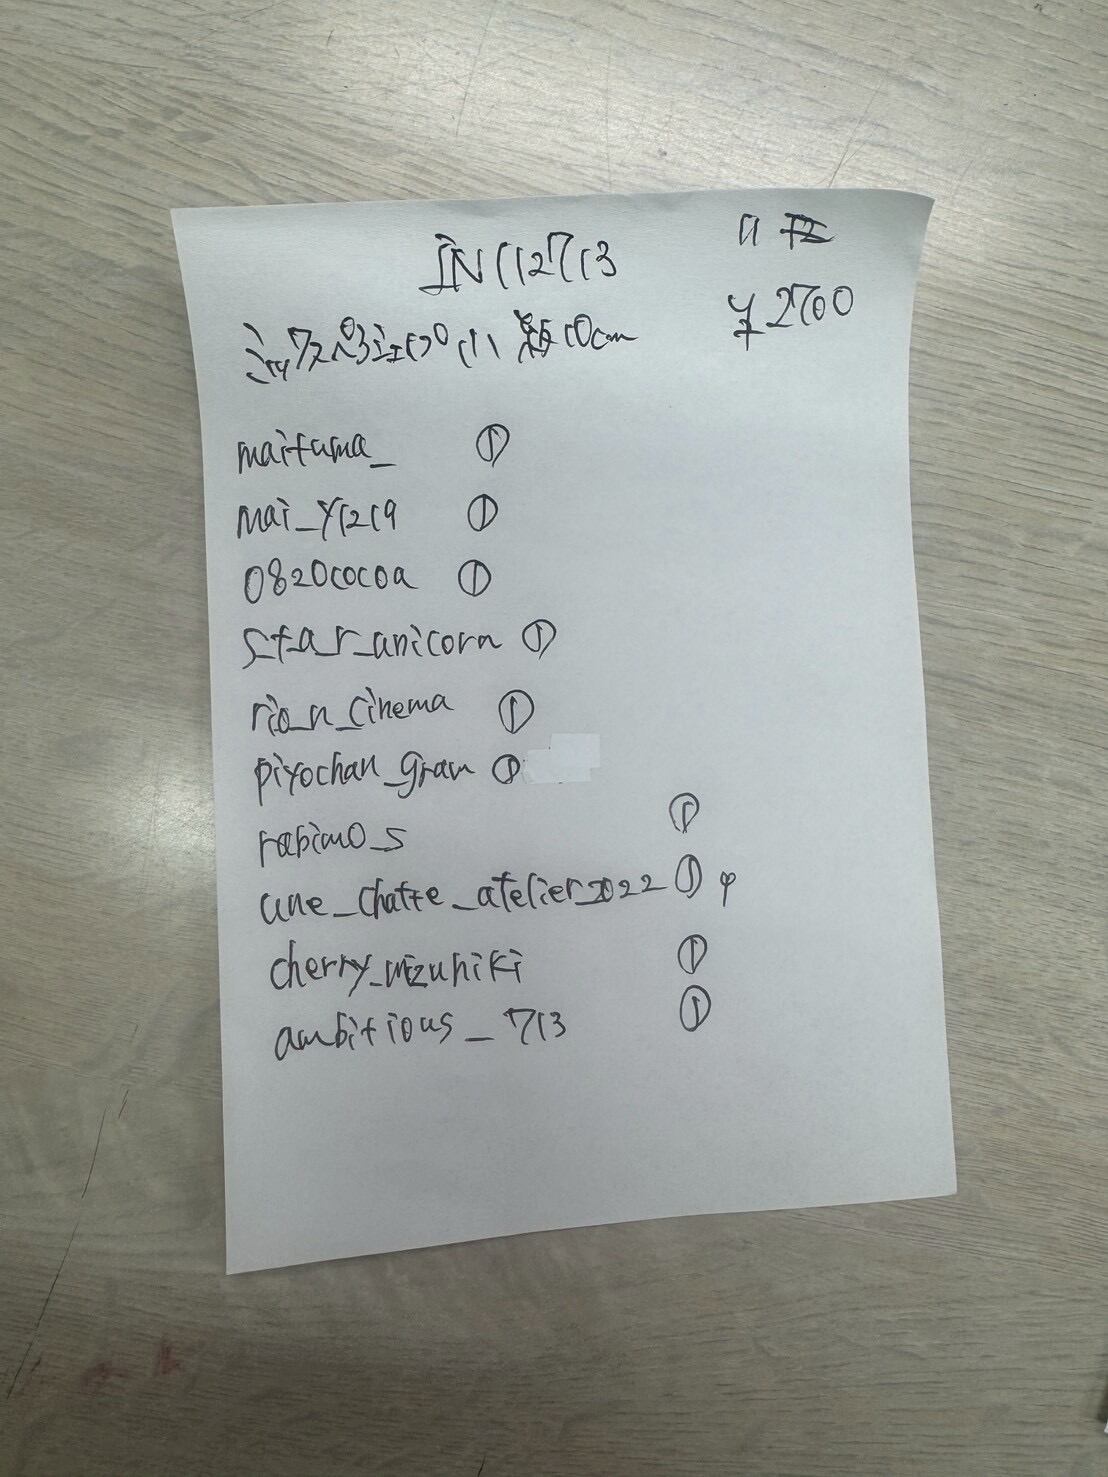 IN112713
¥2700
10cm
maituma_ ①
mai_y1219 ①
0820cocoa ①
s_ta_r_unicorn ①
rio_n_cinema ①
piyochan_gram ①
rabimo_s ①
une_chatte_atelier_2022 ① φ
cherry_mizuhiki ①
ambitious_713 ①